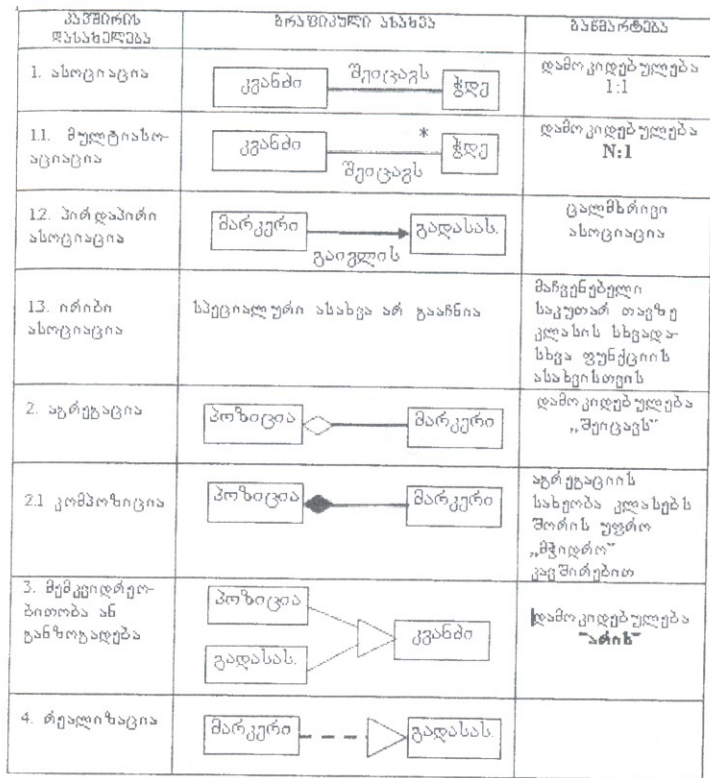 კავშირის დასახელება
გრაფიკული ასახვა
განმარტება
1. ასოციაცია
კვანძი
შეიცავს
ჭდე
დამოკიდებულება
1:1
1.1. მულტიასო-
აციაცია
კვანძი
*
ჭდე
შეიცავს
დამოკიდებულება
N:1
1.2. პირდაპირი
ასოციაცია
მარკერი
გადასას.
გაივლის
ცალმხრივი
ასოციაცია
1.3. ირიბი
ასოციაცია
სპეციალური ასახვა არ გააჩნია
მაჩვენებელი
საკუთარ თავზე
კლასის სხვადა-
სხვა ფუნქციის
ასახვისთვის
2. აგრეგაცია
პოზიცია
მარკერი
დამოკიდებულება
„შეიცავს"
2.1 კომპოზიცია
პოზიცია
მარკერი
აგრეგაციის
სახეობა კლასებს
შორის უფრო
„მჭიდრო"
კავშირებით
3. მემკვიდრეო-
ბითობა ან
განზოგადება
პოზიცია
გადასას.
კვანძი
დამოკიდებულება
"არის"
4. რეალიზაცია
მარკერი
გადასას.